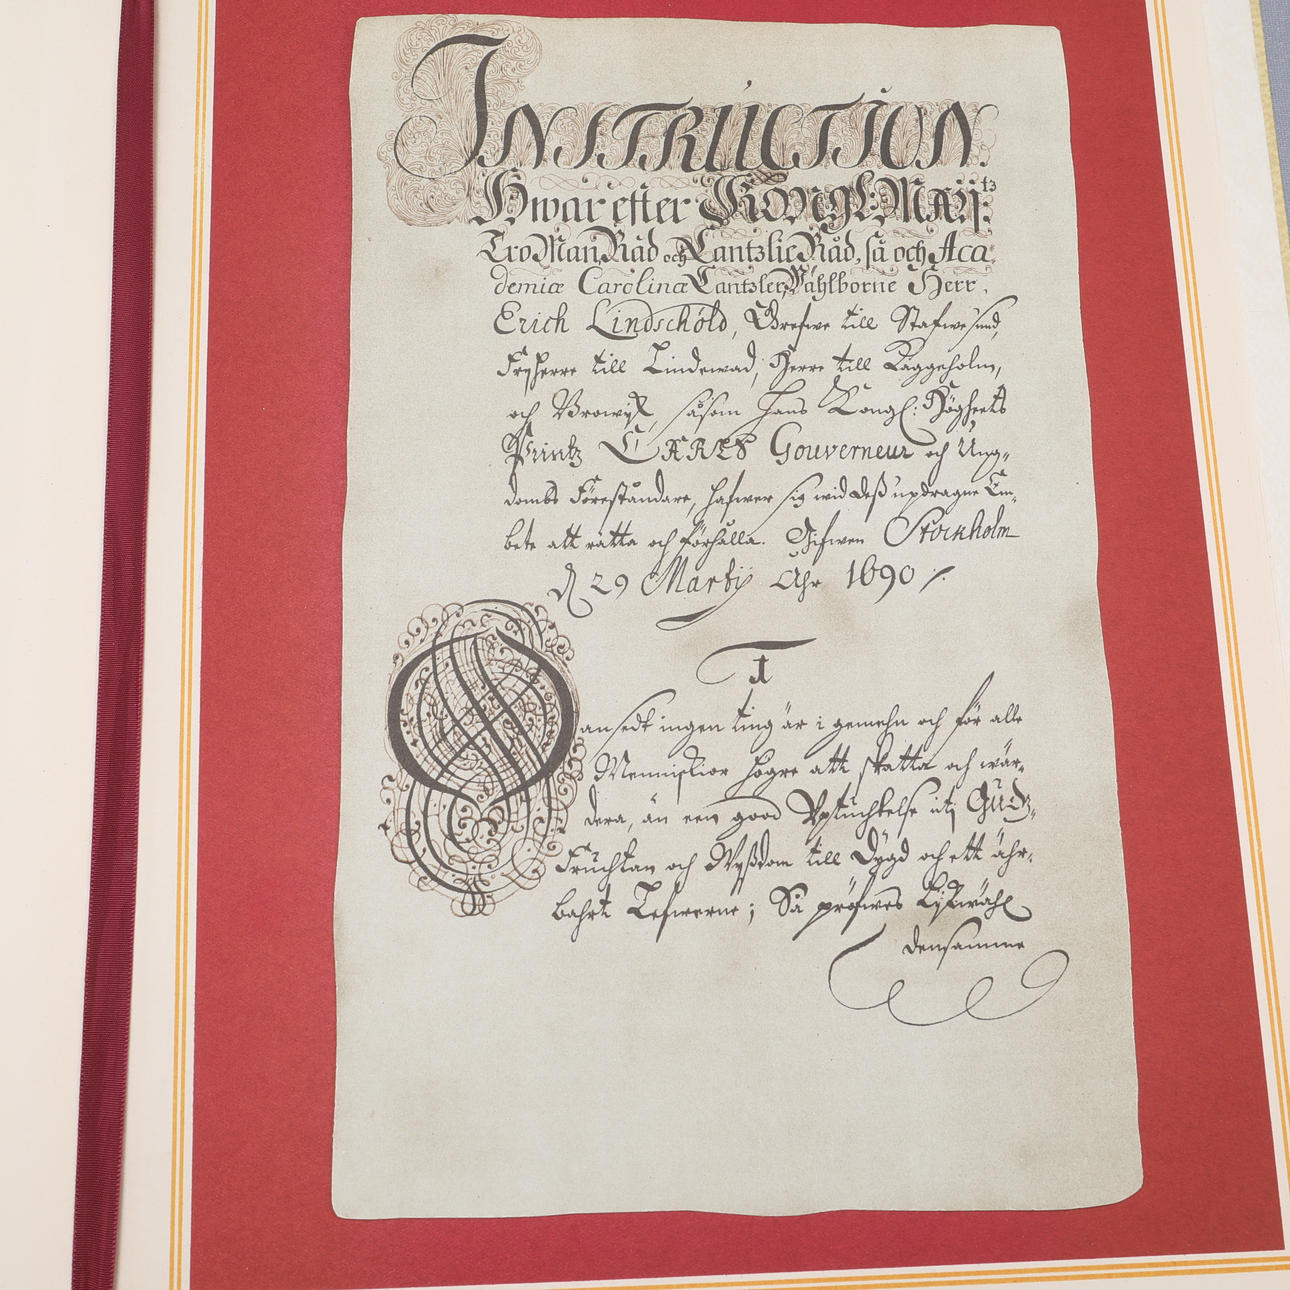 INSTRUCTION.
Hwar efter Kongl: Maij:tz
Tro Man, Råd och Cantzlie Råd, så och Aca
demiæ Carolinæ Cantzler, Wählborne Herr,
Erich Lindschöld, Grefwe till Stafwesund,
Fryherre till Lindewad, Herre till Räggeholm,
och Browijk, såsom Hans Kongl: Högheets
Printz CARLS Gouverneur och Ung-
doms Föreståndare, hafwer sig wid deß updragne Em-
bete att rätta och förhålla. Gifwen Stockholm
d 29 Martij Åhr 1690
1
Oansedt ingen ting är i gemehn och för alle
Menniskior högre att skatta och wär-
dera, än een good Vptuchtelse utj Gudz-
Fruchtan och Wyßdom till Dygd och ett ähr-
bahrt Lefwerne; Så pröfwes lijkwähl
densamme